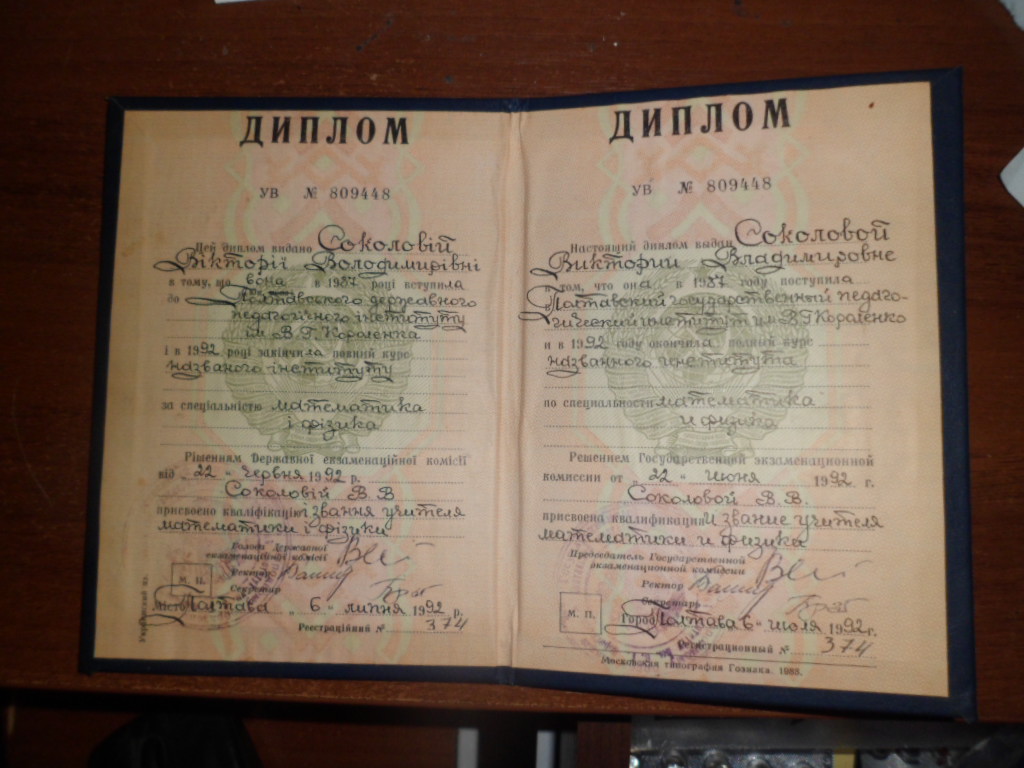 ДИПЛОМ
УВ № 809448
Цей диплом видано Соколовій
Вікторії Володимирівні
в тому, що вона в 1987 році вступила
до Полтавського державного
педагогічного інституту
ім В.Г.Короленка
і в 1992 році закінчила повний курс
названого інституту
за спеціальністю математика
і фізика
Рішенням Державної екзаменаційної комісії
від „22" червня 1992 р.
Соколовій В.В
присвоєно кваліфікацію і звання учителя
математики і фізики
Голова Державної
екзаменаційної комісії
Ректор
Секретар
М. П.
Місто Полтава 6" липня 1992 р.
Реєстраційний № 374
ДИПЛОМ
УВ № 809448
Настоящий диплом выдан Соколовой
Виктории Владимировне
в том, что она в 1987 году поступила
Полтавский государственный педаго-
гический институт им В.Г.Короленко
и в 1992 году окончила полный курс
названного института
по специальности математика
и физика
Решением Государственной экзаменационной
комиссии от „22" июня 1992 г.
Соколовой В.В.
присвоена квалификация и звание учителя
математики и физика
Председатель Государственной
экзаменационной комиссии
Ректор
Секретарь
М. П.
Город Полтава 6" июля 1992 г.
Регистрационный № 374
Московская типография Гознака. 1988.